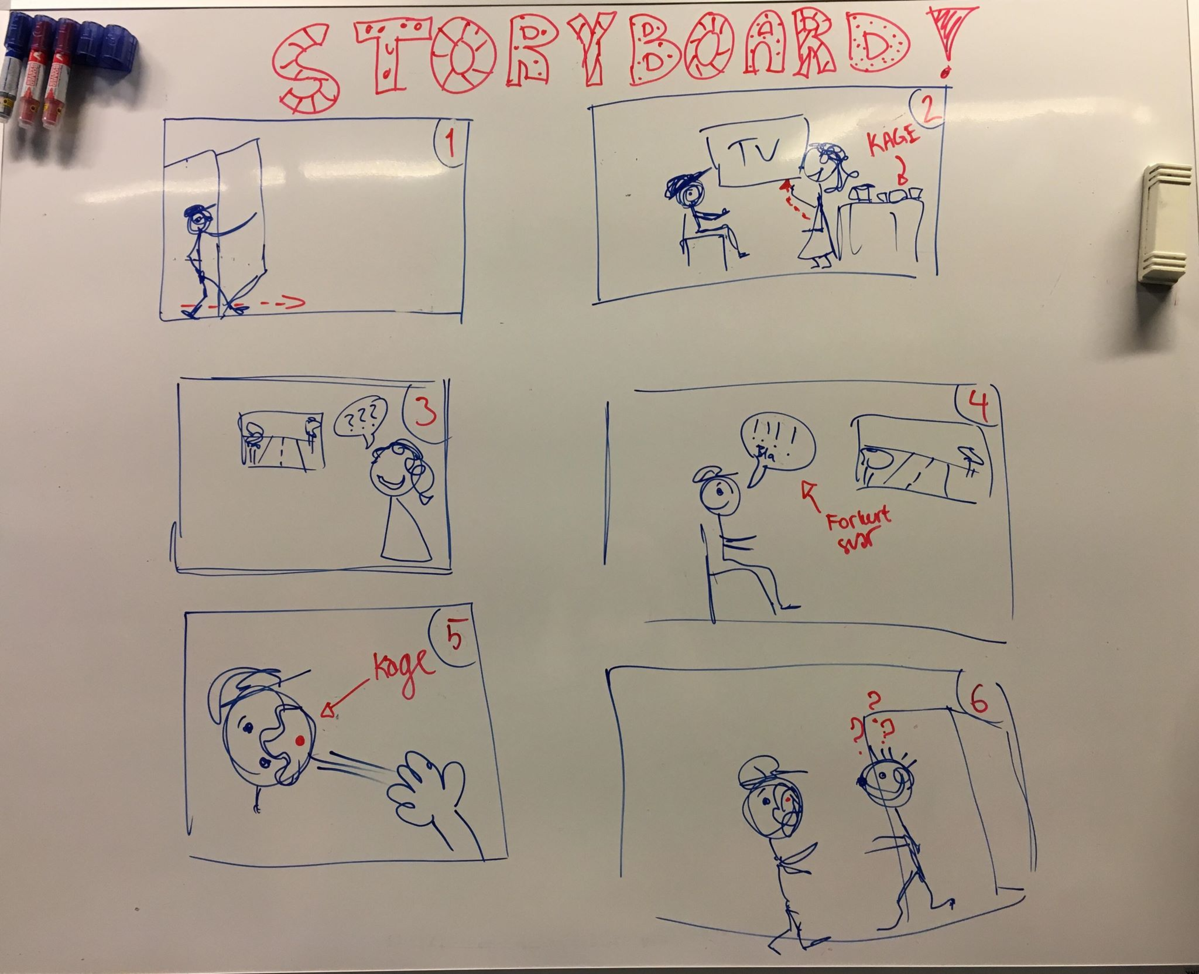 STORYBOARD!
1
2
KAGE
TV
3
???
4
!!!!
Bla
Forkert
svar
5
Kage
6
?
? ?